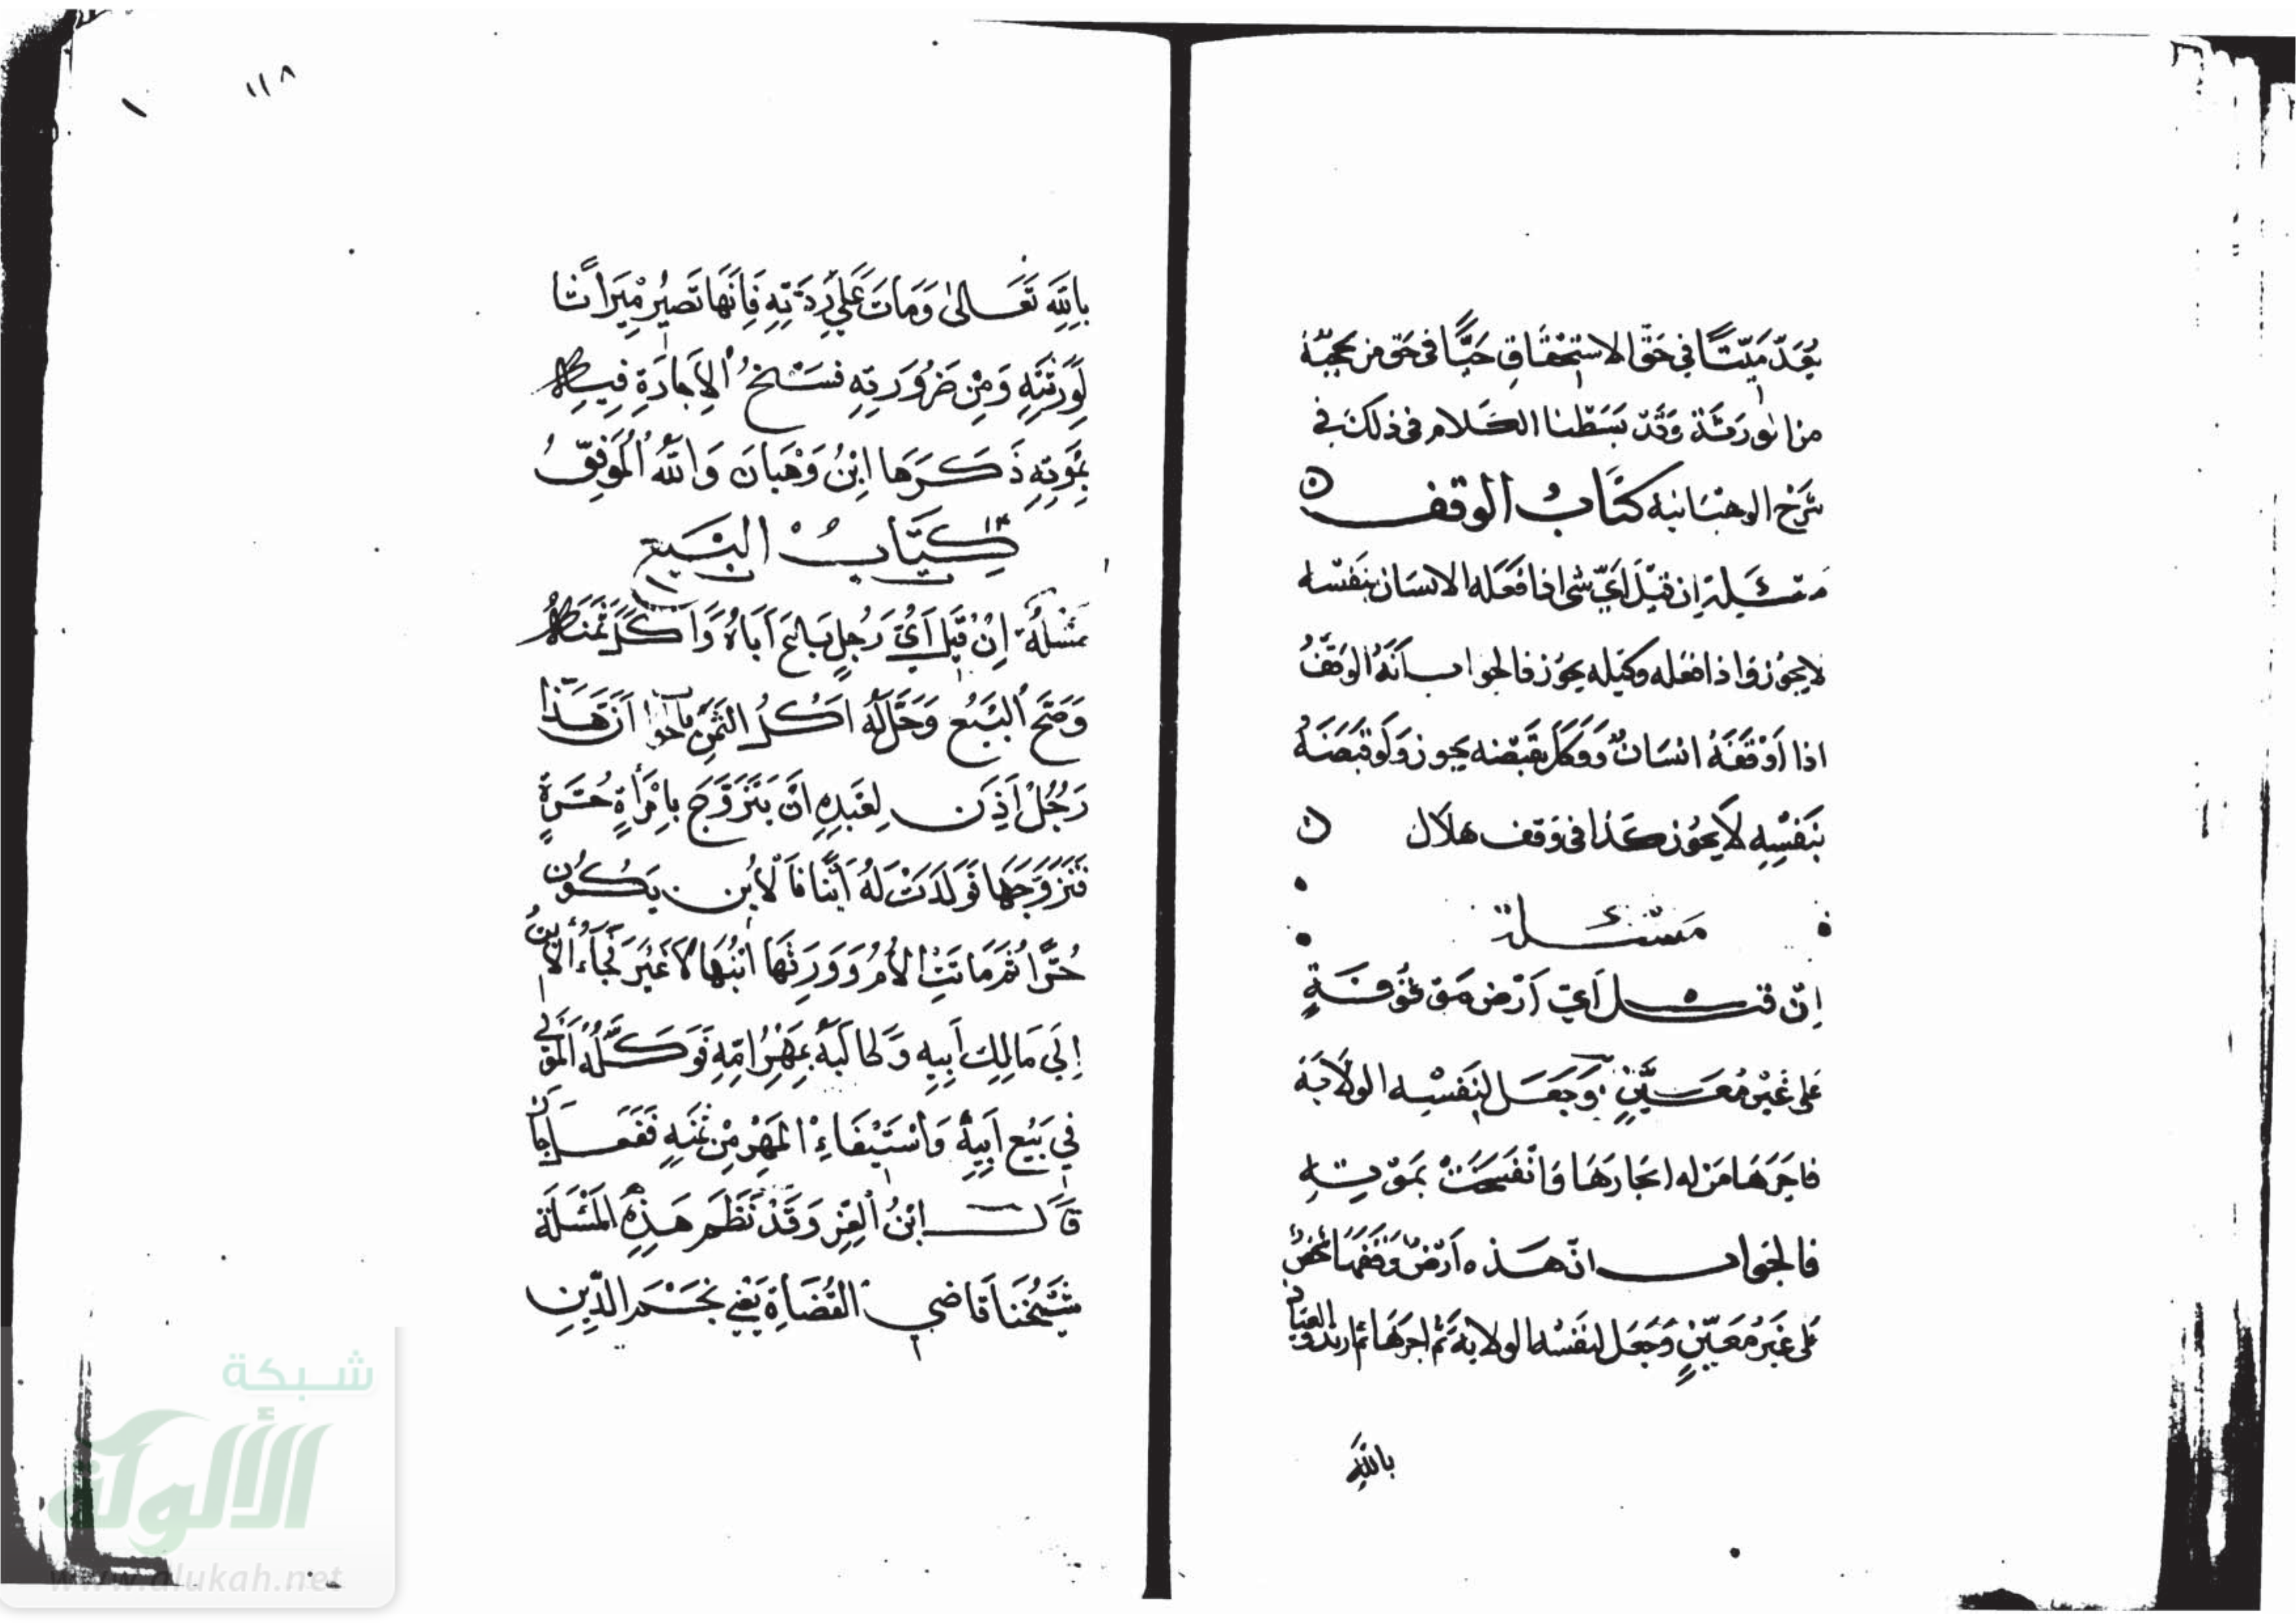 يُعَدّ مَيّتًا في حَقّ الاستحقاقِ حَيًّا في حَق من يحجبه
من الورثة وَقَدْ بَسَطْنا الكلام في ذلك في
شرح الوهبانية كتَابُ الوقف
مسئلة إن قيل أيّ شي اذا فعَله الانسان بنفسه
لا يجوز واذا فعله وكيله يجوز فالجواب أنّهُ الوَقفُ
اذا اَوْقَفَهُ انسَانٌ وَوَكَّل بقبضه يجوز وَلَو قبَضَهُ
بنَفسِهِ لَا يجُوز كذا في وَقف هلال
مسئلة
إن قيل أيّ أرْض موقُوفَةٍ
على غَيْر مُعَيّنٍ وَجَعَل لنَفسِه الولَايَة
فاجَرَهَا من له ايجارهَا وَانفَسَخَتْ بمَوتِهِ
فالجواب انّ هذه أرْضٌ وقفهَا شخصٌ
على غَير مُعَيّنٍ وَجَعَل لنفسه الولاية ثم اجرهَا ثم ارتد والعياذ
بالله
١١٨
بِاللَّهِ تَعَالى وَمَاتَ عَلى رِدَّتِهِ فَإنَّهَا تَصيرُ مِيَراثًا
لِوَرَثَتِهِ وَمِنْ ضَرُورَتِهِ فَسْخُ الإجارَةِ فِيهَا
بمَوتِهِ ذَكَرَهَا ابْنُ وَهْبَانَ وَاللَّهُ الْمُوَفِّقُ
كِتَابُ البَيع
مَسْئَلَةٌ إنْ قِيلَ أَيُّ رَجُلٍ بَاعَ أَبَاهُ وَأَكَلَ ثَمَنَهُ
وَصَحَّ البَيْعُ وَحَلَّ لَهُ أكْلُ الثَّمَنِ فالجواب أنّ هَذَا
رَجُلٌ أذِنَ لِعَبْدِهِ أنْ يَتَزَوَّجَ بِامْرَأةٍ حُرَّةٍ
فَتَزَوَّجَهَا فَوَلَدَتْ لَهُ ابْنًا فَالابْن يَكُون
حُرًّا ثُمَّ مَاتَتِ الأُمُّ وَوَرِثَهَا ابْنُهَا لَا غَيْرَ فَجَاءَ الابْنُ
إلَى مَالِكِ أبِيهِ وَطَالَبَهُ بِمَهْرِ امِّهِ فَوَكَّلَهُ المَوْلَى
في بَيْعِ أبِيهِ وَاسْتِيْفَاءِ الْمَهْرِ مِنْ ثَمَنِهِ فَفَعَلَ جَازَ
قَالَ ابْنُ العِزِّ وَقَدْ نَظَمَ هَذِهِ الْمَسْئَلَة
شَيْخُنَا قَاضِي القُضَاةِ يَعْني نجْمَ الدِّينِ
شبكة
الألوكة
www.alukah.net